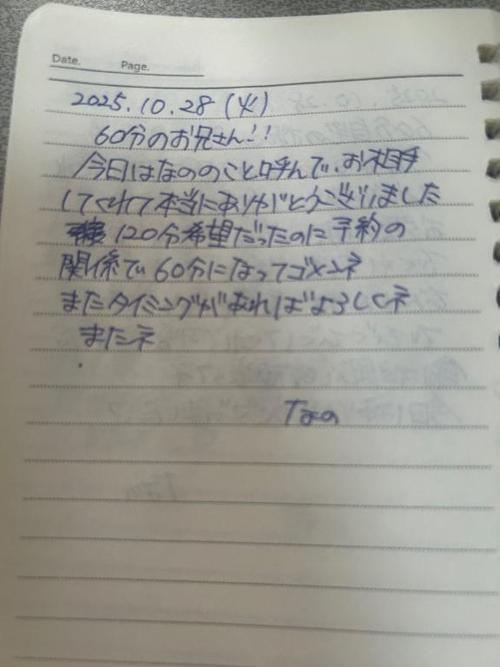 Date. Page.
2025.10.28(火)
60分のお兄さん!!
今日はなののこと呼んで、お相手
してくれて本当にありがとうございました
120分希望だったのに予約の
関係で60分になってゴメンネ
またタイミングがあればよろしくネ
またネ
なの